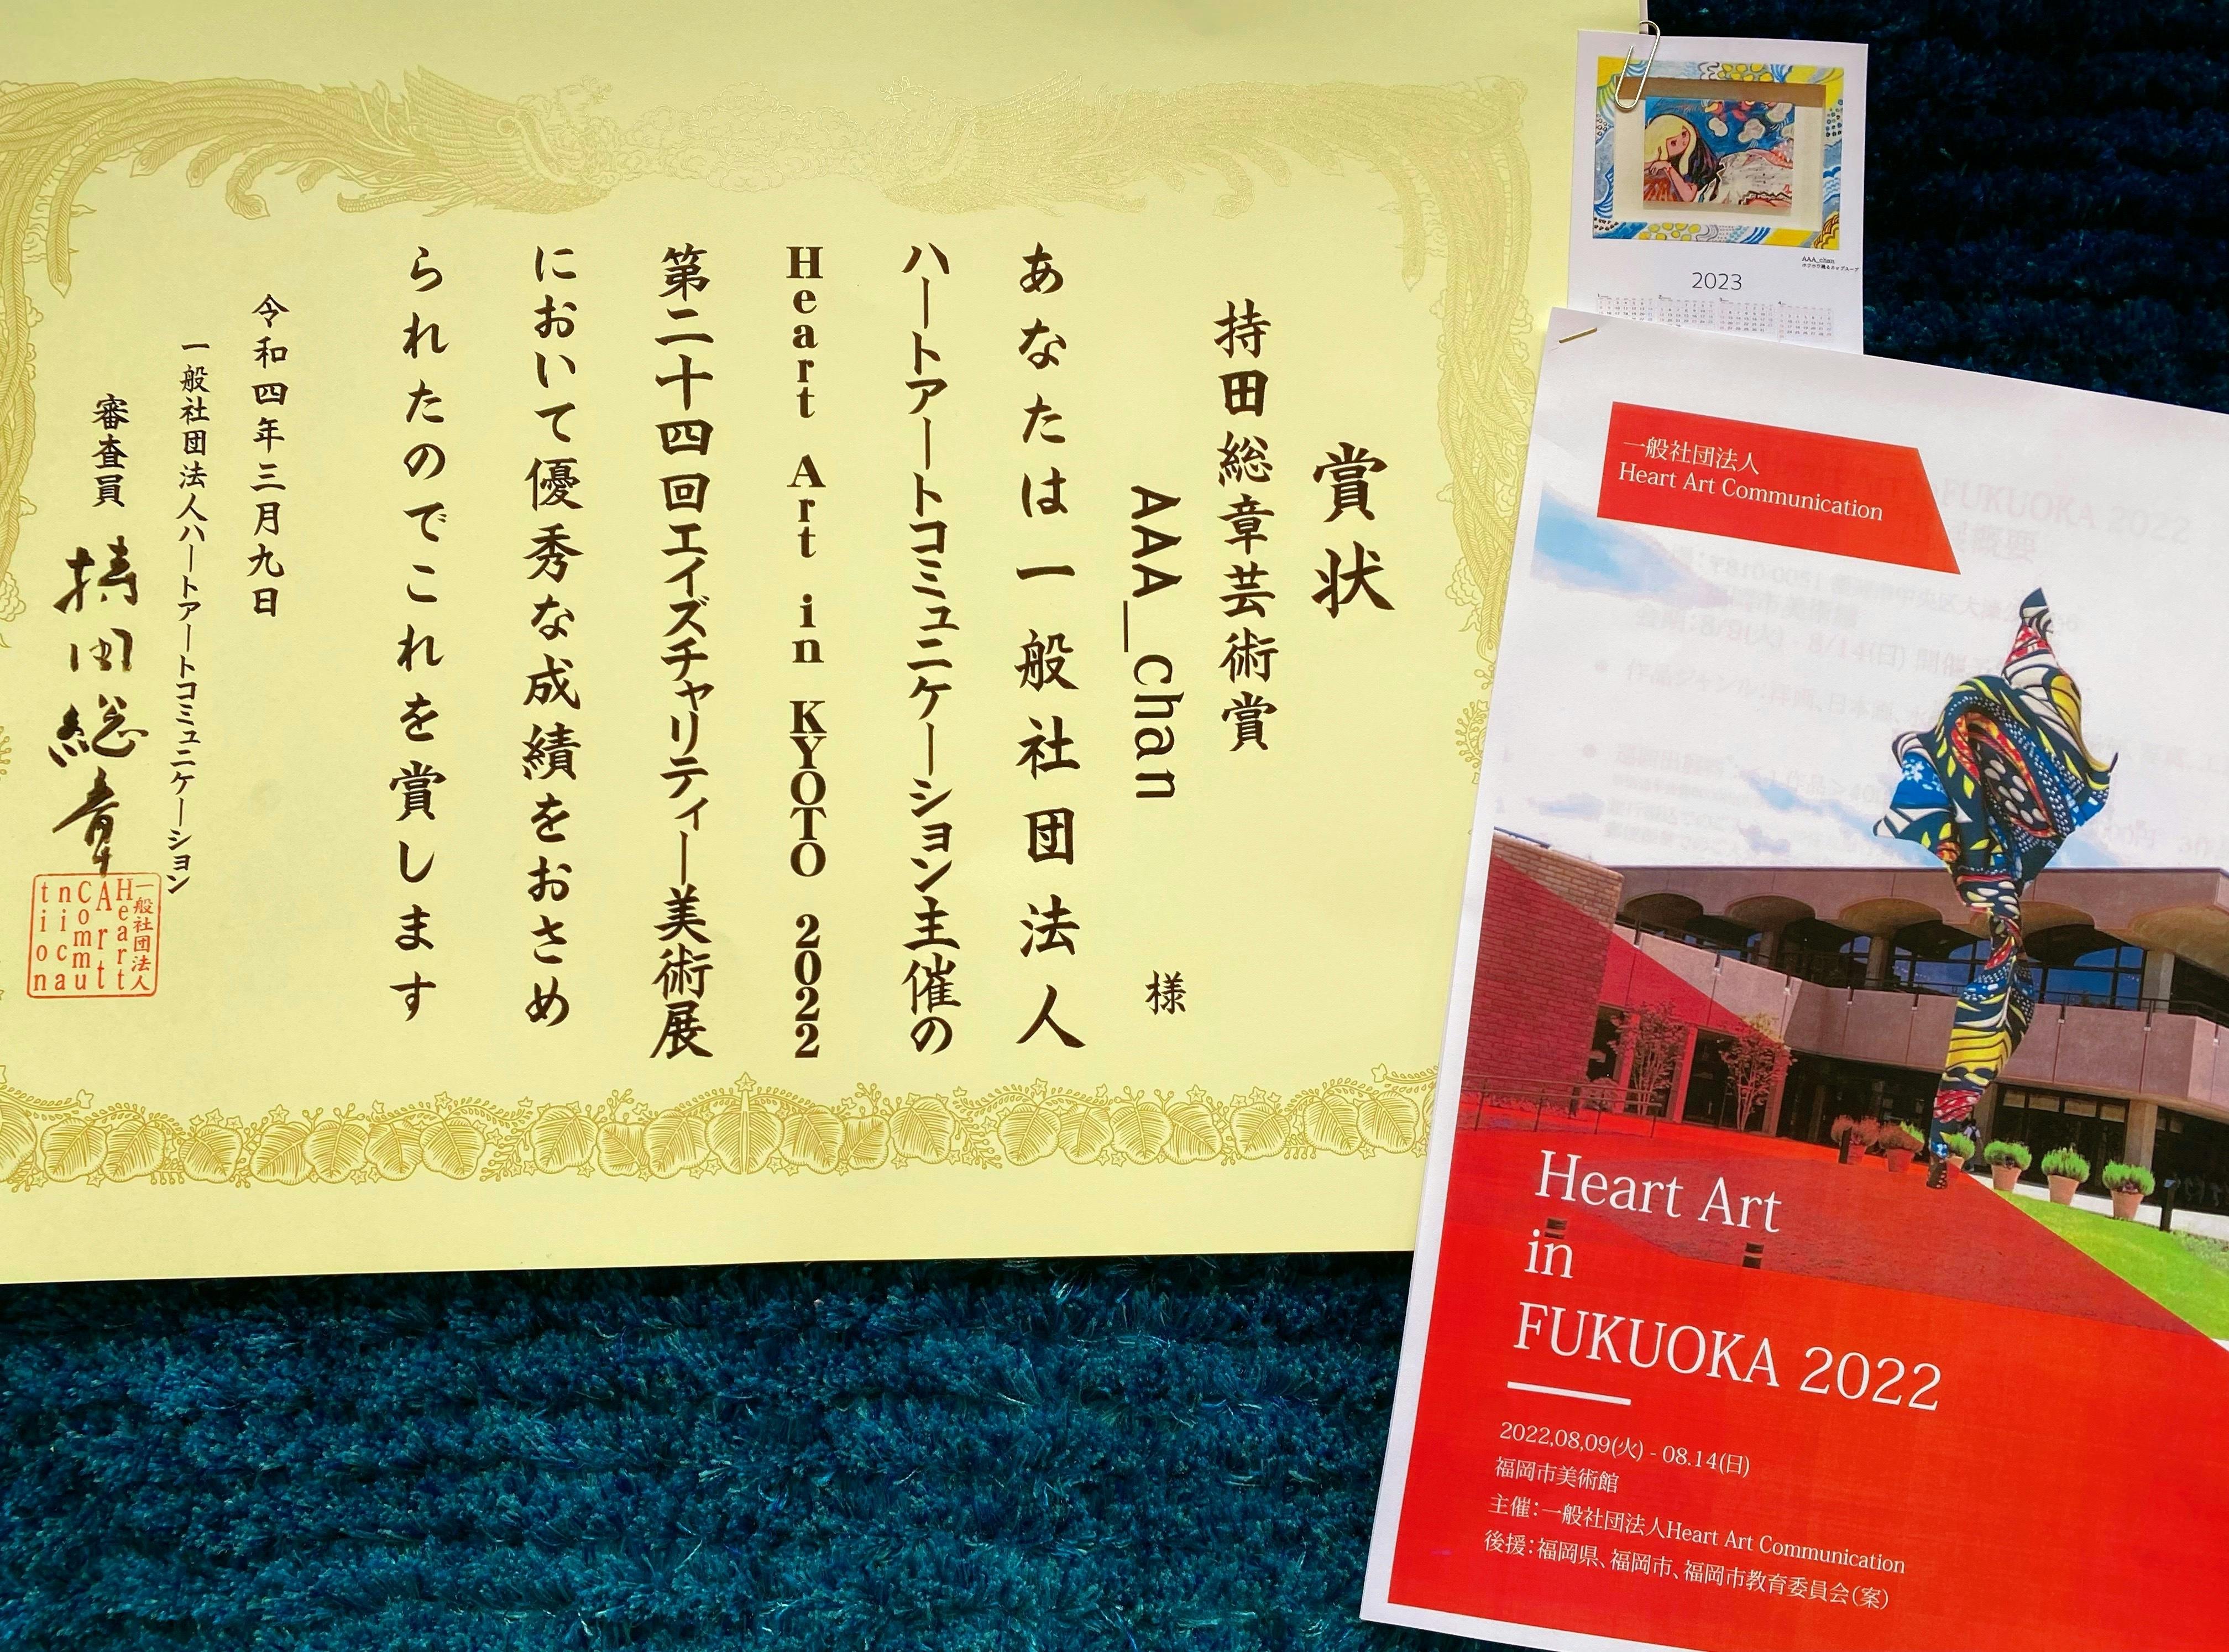 賞状
持田総章芸術賞
AAA_chan 様
あなたは一般社団法人
ハートアートコミュニケーション主催の
Heart Art in KYOTO 2022
第二十四回エイズチャリティー美術展
において優秀な成績をおさめ
られたのでこれを賞します
令和四年三月九日
一般社団法人ハートアートコミュニケーション
審査員 持田総章
一般社団法人
Heart
Art
Commu
nica
tion
AAA_chan
2023
一般社団法人
Heart Art Communication
Heart Art
in
FUKUOKA 2022
2022,08,09(火) - 08.14(日)
福岡市美術館
主催：一般社団法人Heart Art Communication
後援：福岡県、福岡市、福岡市教育委員会(案)